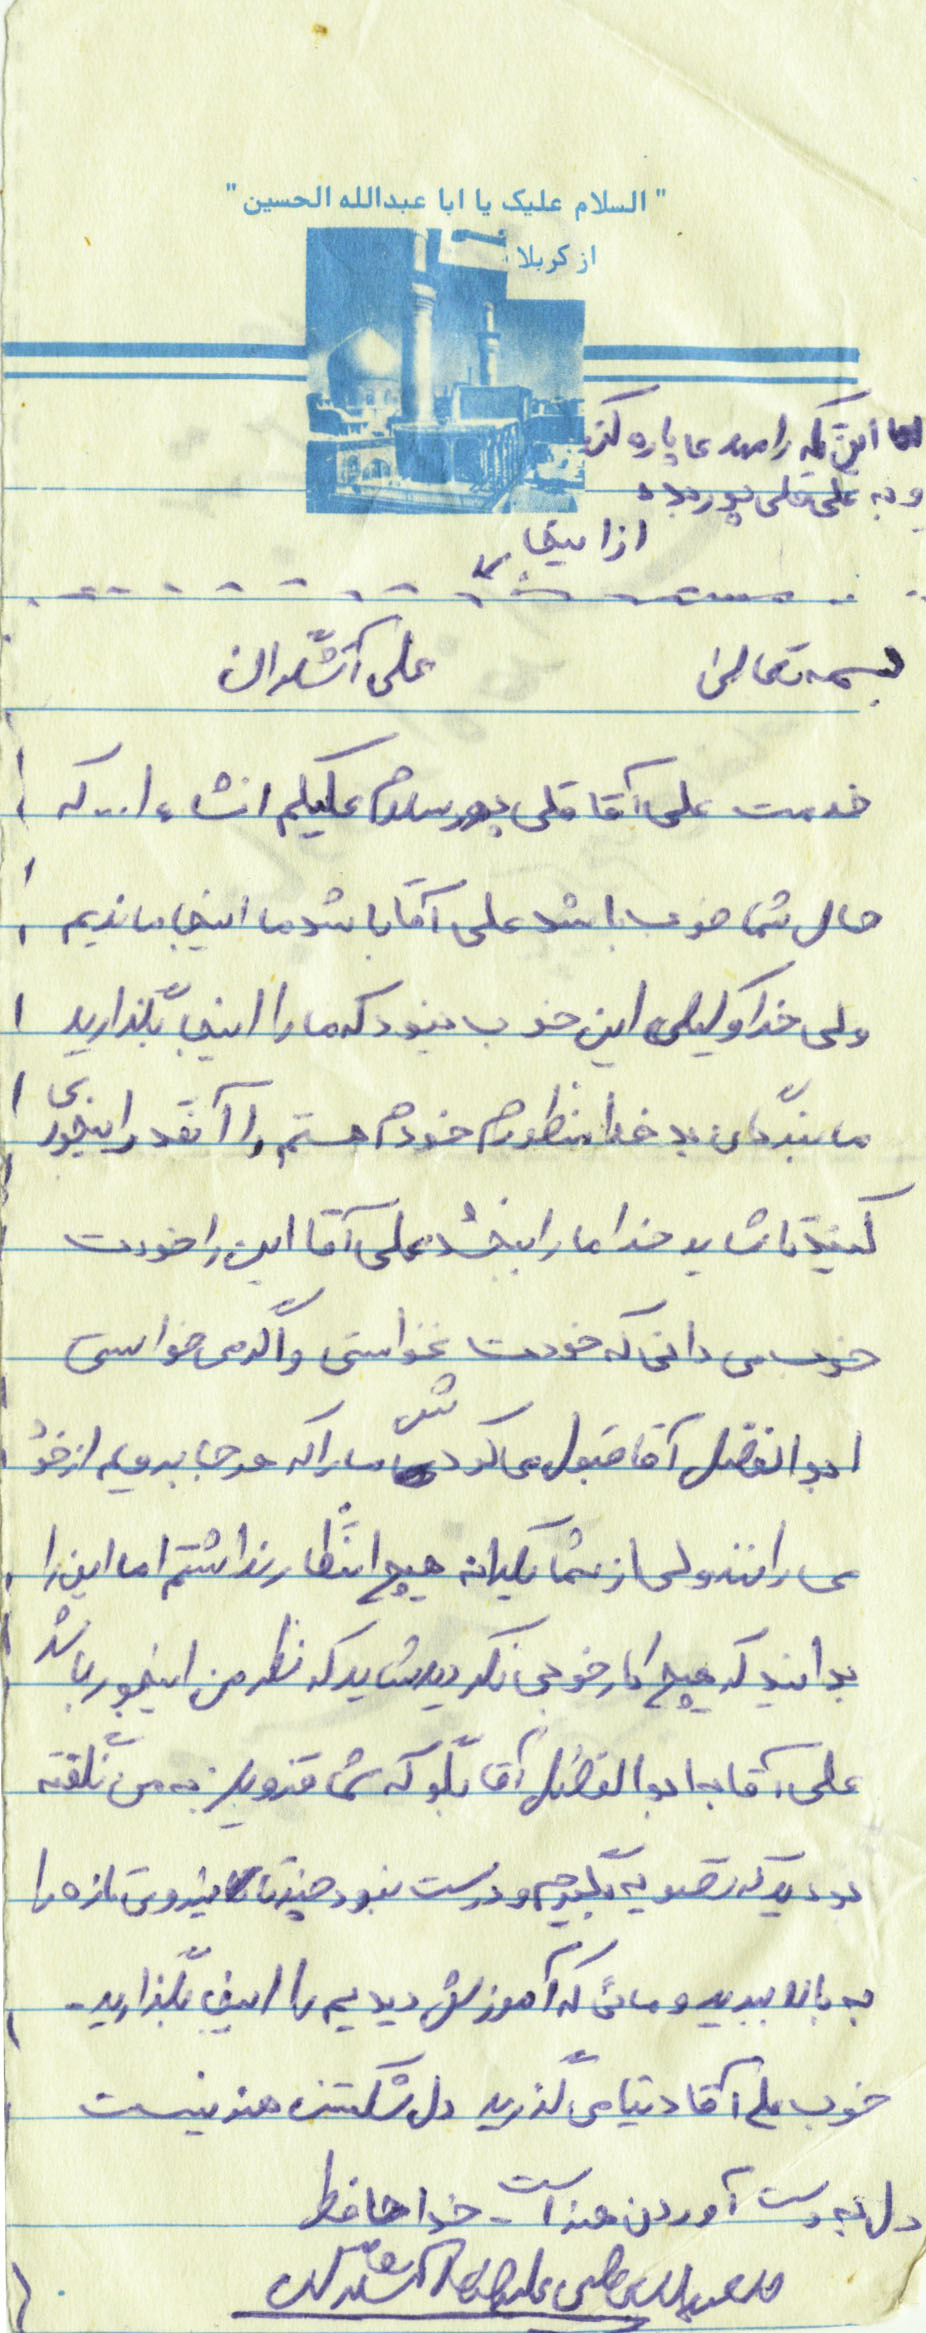 "السلام علیک یا ابا عبدالله الحسین"
از کربلا
این تکه را مهدی پاره کن
و به علی قلی پور بده
از اینجا
بسمه تعالی علی آتشدان
خدمت علی آقا قلی پور سلام علیکم انشاء ا... که
حال شما خوب باشد علی آقا باشد ما اینجا ماندیم
ولی خدا وکیلی این خوب نبود که ما را اینجا بگذارید
ما بنده‌های بد خدا منظورم خودم هستم را آنقدر اینجوری
کنید تا شاید خدا ما را ببخشد علی آقا این را خودت
خوب می دانی که خودت نخواستی و اگر می خواستی
ابوالفضل آقا قبول می کردش ما را که هر جا برویم از خود
می رانند ولی از شما یکی انتظار نداشتم اما این را
بدانید که هیچ کار خوبی نکردید شاید که نظر من اینجور باشد
علی آقا به ابوالفضل آقا بگو که شما قزوین به من نگفته
بودید که تصویه بگیرم و درست نبود چند تا نیروی تازه را
به بالا ببرید و مائی که آموزش دیدیم را اینجا بگذارید.
خوب علی آقا دنیا می گذرد دل شکستن هنر نیست
دل به دست آوردن هنر است - خداحافظ